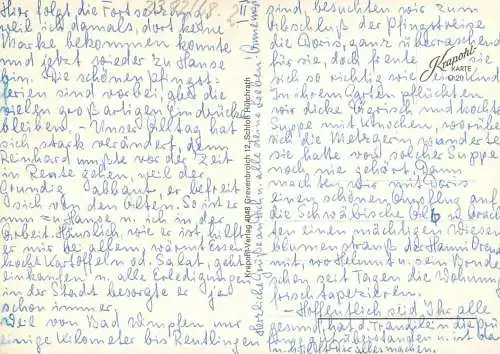 Hier folgt die Fortsetzung,
weil ich damals dort keine
Marke bekommen konnte
und jetzt wieder zu Hause
bin. Die schönen Pfingst-
ferien sind vorbei, aber die
vielen großartigen Eindrücke
bleiben. - Unser Alltag hat
sich stark verändert, denn
Reinhard mußte vor der Zeit
in Rente gehen, weil der
Grundig Sabbaut, er befreit
sich von den Alten. So ist er
nun zu Hause u. ich in der
Arbeit. Häuslich, wie er ist, hilft
er mir bei allem, wärmt Essen,
kocht Kartoffeln od. Salat, geht
einkaufen u. alle Erledigungen
in der Stadt besorgte er ja
schon immer.
Weil von Bad Wimpfen nur
einige Kilometer bis Reutlingen
sind, besuchten wir zum
Abschluß der Pfingstreise
die Doris, ganz überraschend
für sie, doch freute sie
sich so richtig wie ein Kind
In ihrem Garten pflückten
wir dicke Bärlauch und kochten
Suppe mit Knochen, worüber
sich die Metzgerin wunderte,
sie hatte von solcher Suppe
noch nie gehört. Dann
machten wir mit Doris
einen schönen Ausflug auf
die Schwäbische Alb u. brach-
ten einen mächtigen Wiesen
blumenstrauß der Hanni Orend
mit, wo Helmut u. sein Bruder
schon zeit Tagen die Wohnung
frisch tapezieren.
- Hoffentlich seid Ihr alle
gesund, hat d. Traudile in die Prü
fung gut überstanden u. ist das
Herzliche Grüße an Dich u. alle deine Lieben! Annemie
Krapohl-Verlag 4048 Grevenbroich 12, Schloß Hülchrath
Krapohl-
KARTE